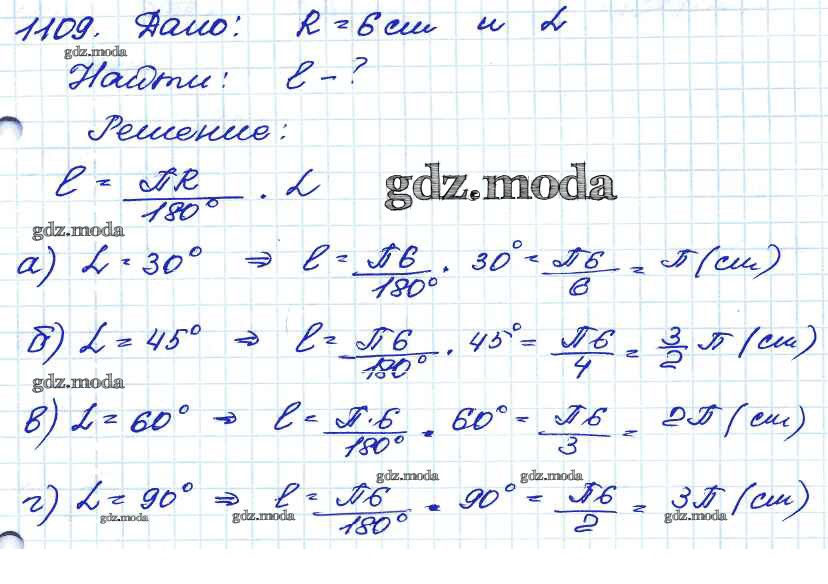 1109. Дано: R = 6 cm и L
gdz.moda
Найти: l - ?
Решение:
l = ПR/180° · L
gdz.moda
gdz.moda
а) L = 30° ⇒ l = П6/180° · 30° = П6/6 = П (cm)
б) L = 45° ⇒ l = П6/180° · 45° = П6/4 = 3/2 П (cm)
gdz.moda
в) L = 60° ⇒ l = П·6/180° · 60° = П6/3 = 2П (cm)
gdz.moda gdz.moda
г) L = 90° ⇒ l = П6/180° · 90° = П6/2 = 3П (cm)
gdz.moda gdz.moda gdz.moda gdz.moda